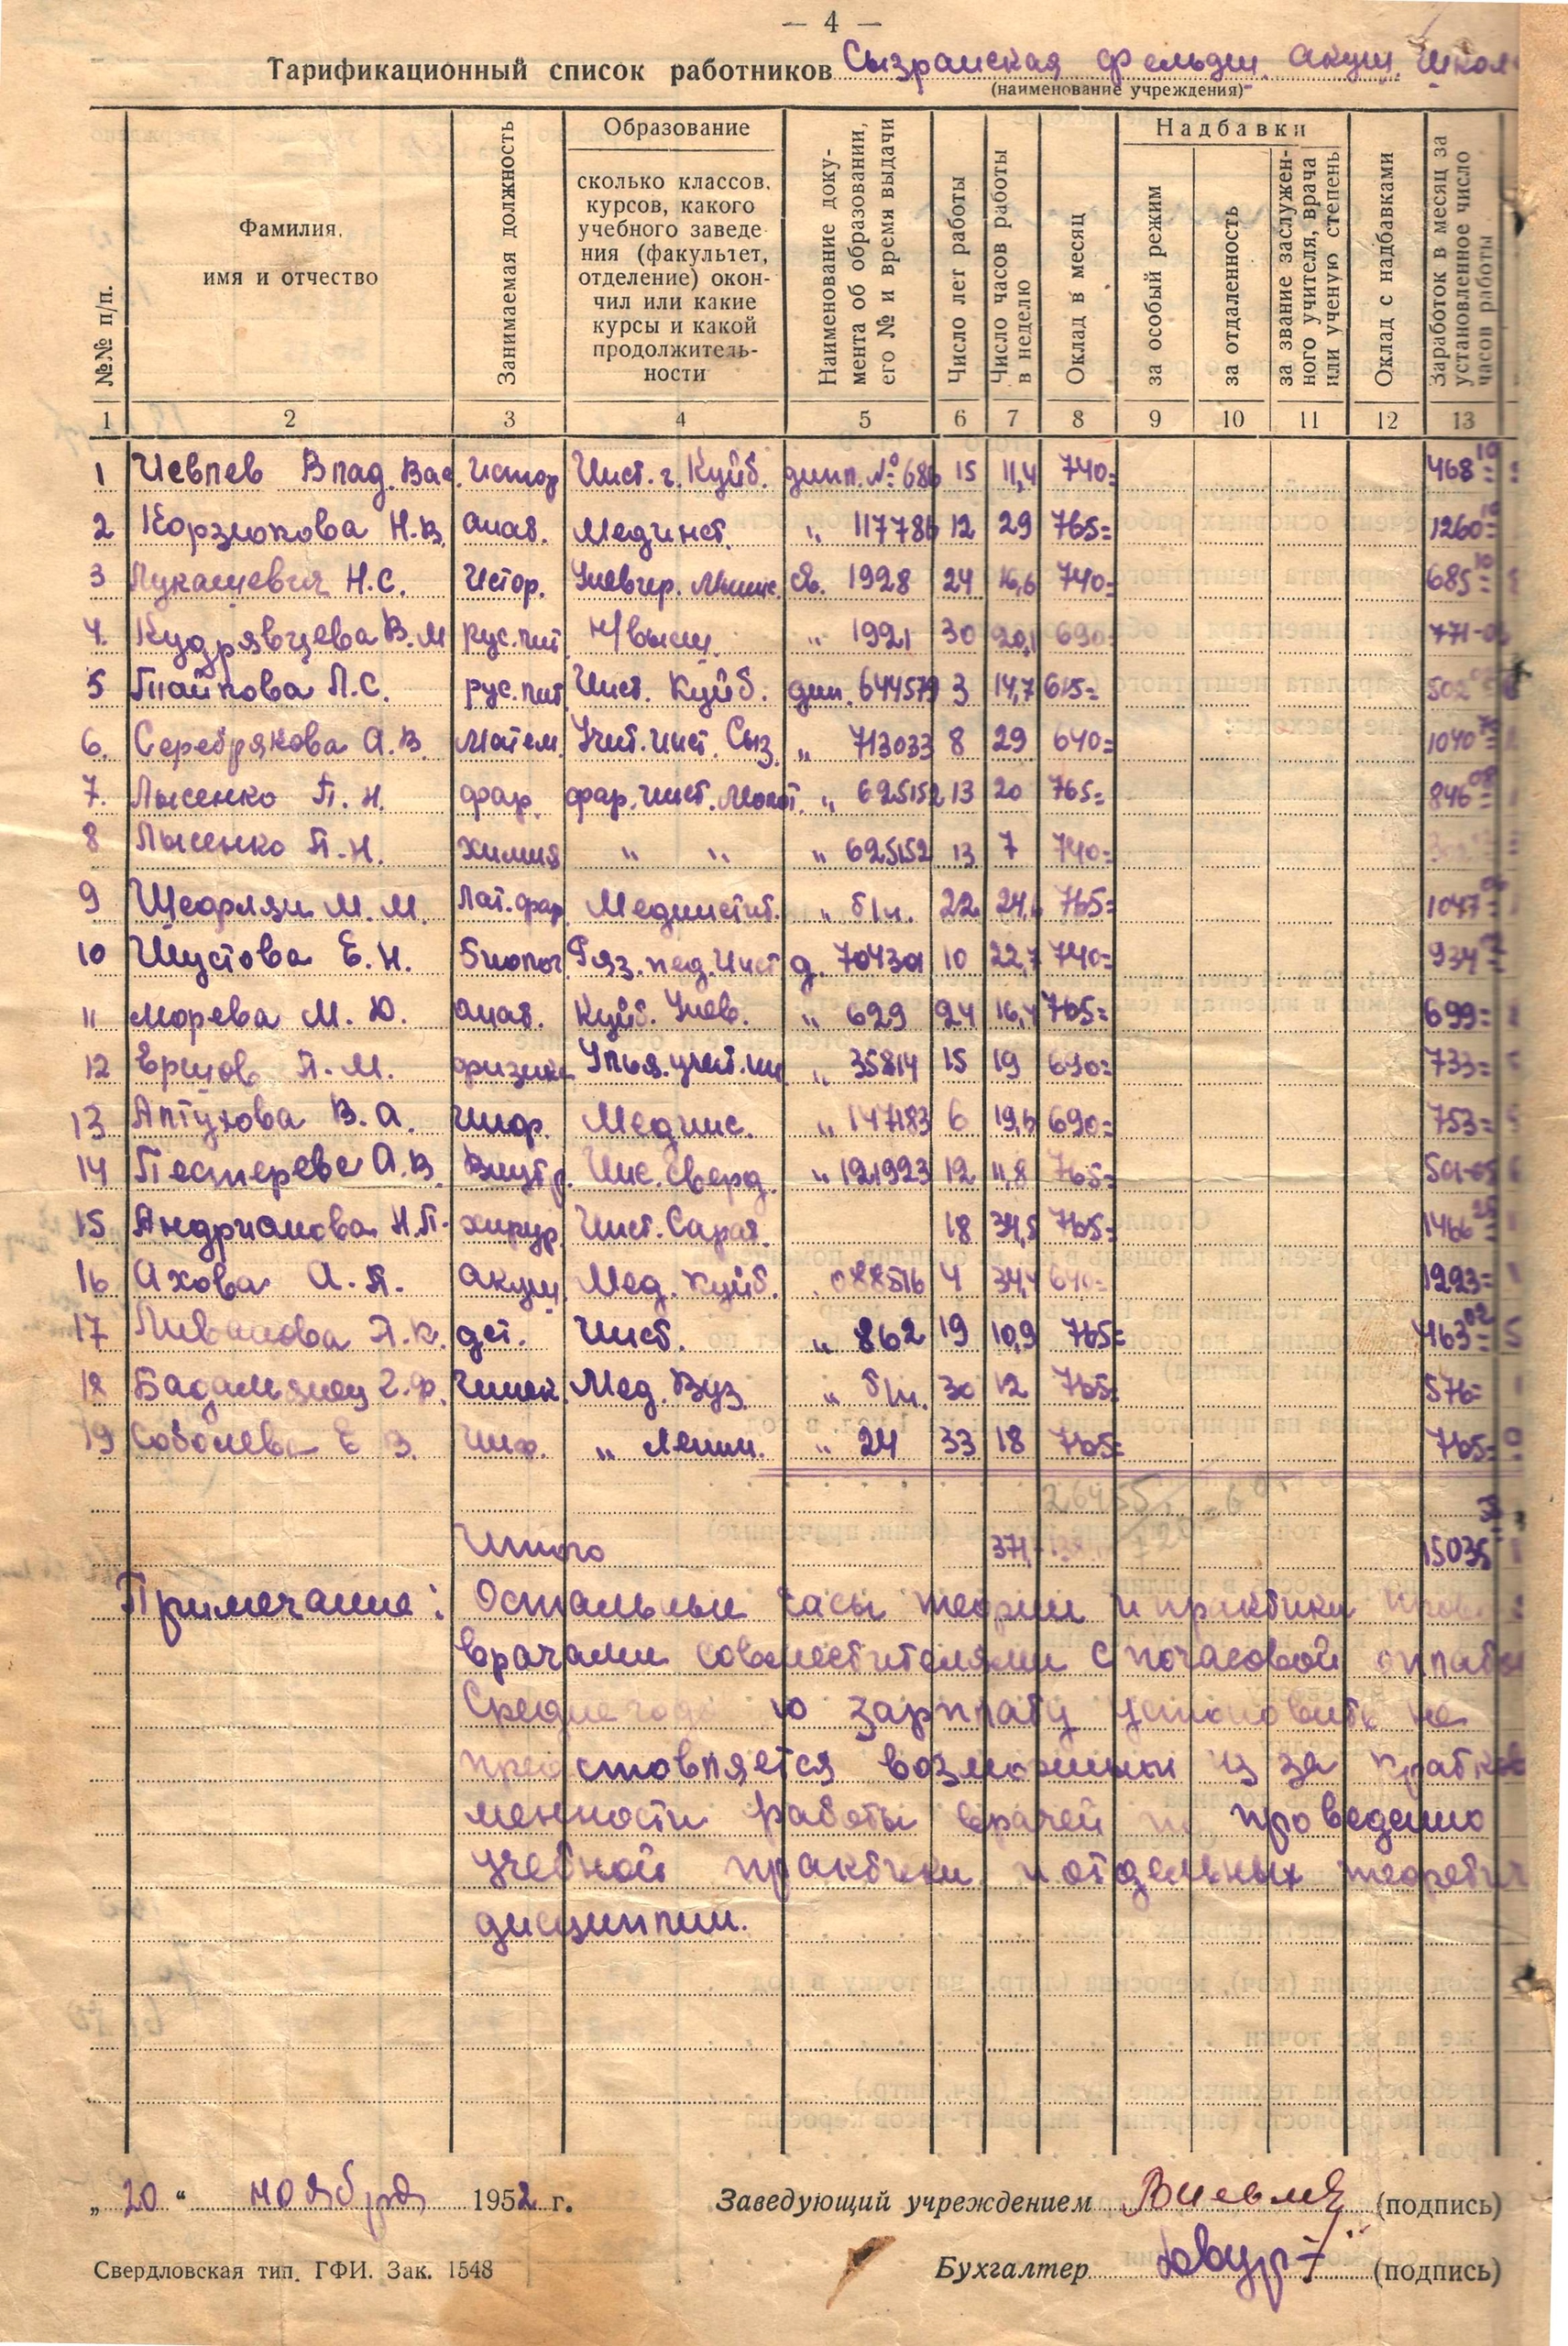 — 4 —
Тарификационный список работников Сызранская фельдш. акуш. школ
(наименование учреждения)
№№ п/п.
Фамилия,
имя и отчество
Занимаемая должность
Образование
сколько классов,
курсов, какого
учебного заведе
ния (факультет,
отделение) окон-
чил или какие
курсы и какой
продолжитель-
ности
Наименование доку-
мента об образовании,
его № и время выдачи
Число лет работы
Число часов работы
в неделю
Оклад в месяц
Надбавки
за особый режим
за отдаленность
за звание заслужен-
ного учителя, врача
или ученую степень
Оклад с надбавками
Заработок в месяц за
установленное число
часов работы
1 2 3 4 5 6 7 8 9 10 11 12 13
1 Иевлев Влад. Вас. Истор Инст. г. Куйб. дипл. № 686 15 11,4 740= 468 10
2 Корзюкова Н.В. анат. Мединст. " 117786 12 29 765= 1260
3 Лукашевич Н.С. Истор. Универ. Минис. св. 1928 24 16,6 740= 685 10
4. Кудрявцева В.М рус.лит Н/высш. " 1921 30 20,1 690= 771-0
5 Тайкова Л.С. рус.лит Инст. Куйб. дип. 644579 3 14,7 615= 502
6. Серебрякова А.В. Матем. Учит. инст. Сыз. " 713033 8 29 640= 1040
7. Лысенко П.Н. фар. фар. инст. Молот. " 625152 13 20 765= 846
8 Лысенко П.Н. химия " " " 625152 13 7 740=
9 М.М. Лат. фар Мединстит. " б/н. 22 24,6 765= 1047
10 Шустова Е.Н. Биолог. Ряз. пед. Инст д. 704301 10 22,7 740= 934
11 Морева М. Ю. анат. Куйб. Унив. " 629 24 16,4 765= 699=
12 Ершов П.М. физика Улья. учит. ин " 35814 15 19 690= 733=
13 Алтухова В.А. Инф. Мединс. " 147183 6 19,6 690= 753=
14 Пестерева А.В. Внутр. Инс. Сверд. " 121923 12 11,8 765= 501-05
15 Андрианова Н.П. хирур. Инст. Сарат. 18 34,5 765= 1466 25
16 Ахова А.П. акуш. Мед. Куйб. " 088516 4 34,4 640= 1223=
17 Ливанова П.К. дет. Инст. " 862 19 10,9 765= 463 02
18 Бадамянц Г.Ф. Гинек. Мед. Вуз. " б/н. 30 12 765= 576=
19 Соболева Е В. Инф. " Ленин. " 24 33 18 765= 765=
Итого 371, 15035
Примечание: Остальные часы теории и практики
врачами совместителями с почасовой оплатой
Среднегодовую зарплату установить не
представляется возможным из за кратков
менности работы врачей по проведению
учебной практики и отдельных теоретич
дисциплин.
„ 20 “ ноября 1952 г.
Заведующий учреждением (подпись)
Бухгалтер (подпись)
Свердловская тип. ГФИ. Зак. 1548